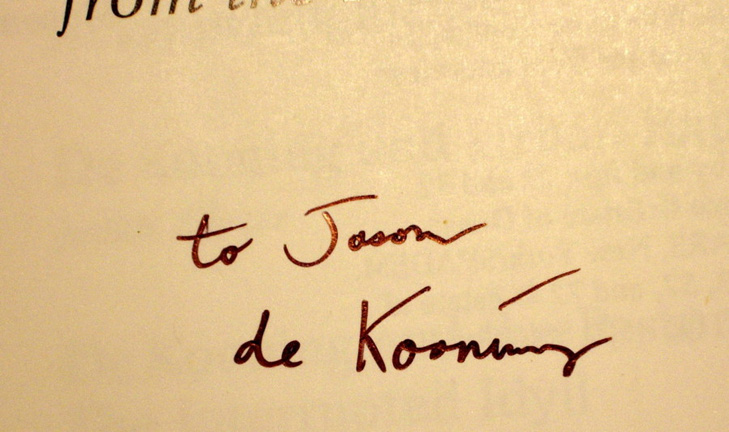 from the
to Jason
de Kooning